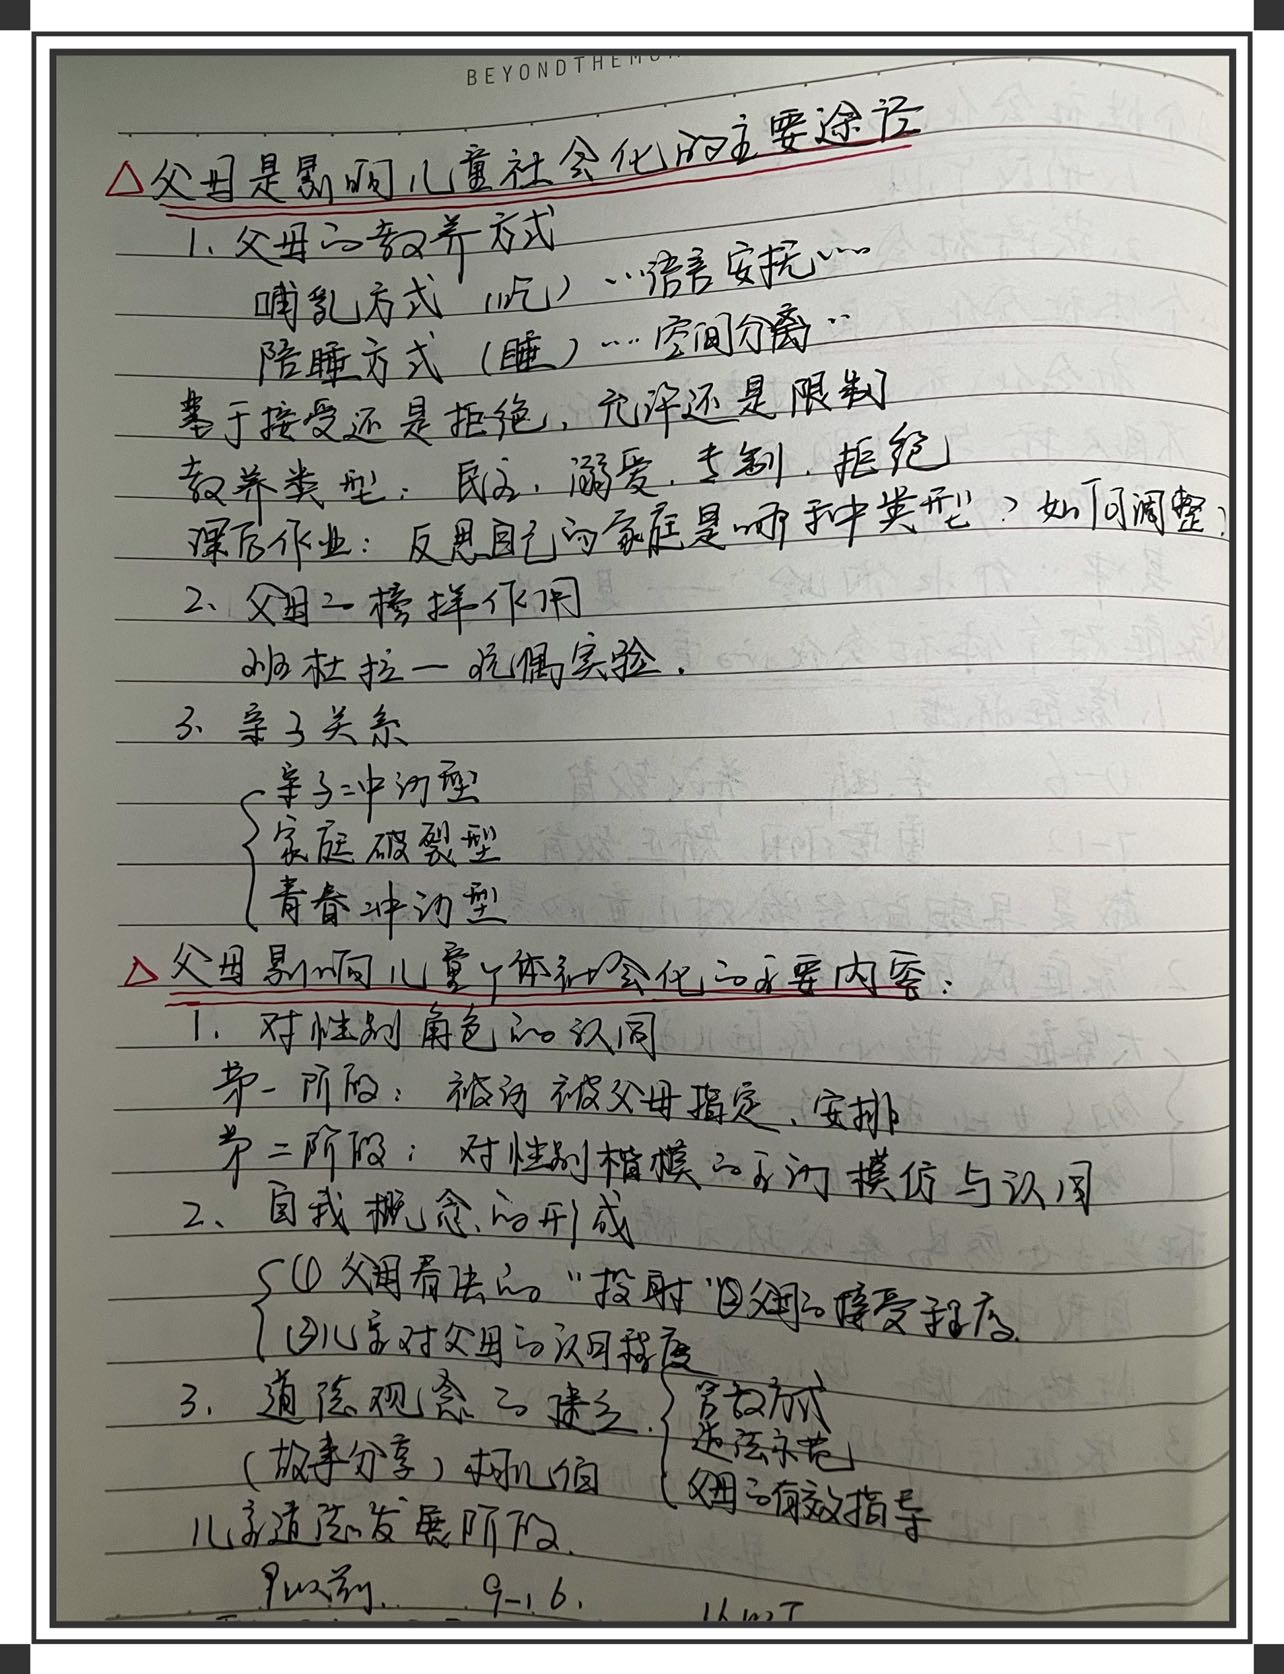 BEYONDTHEMO
△父母是影响儿童社会化的主要途径
1. 父母的教养方式
哺乳方式（吃）…语言安抚……
陪睡方式（睡）…空间分离…
基于接受还是拒绝，允许还是限制
教养类型：民主、溺爱、专制、拒绝
课后作业：反思自己的家庭是哪种类型？如何调整？
2、父母的榜样作用
班杜拉—玩偶实验.
3、亲子关系
亲子冲动型
家庭破裂型
青春冲动型
△父母影响儿童个体社会化的主要内容：
1. 对性别角色的认同
第一阶段：被动 被父母指定、安排
第二阶段：对性别楷模的主动模仿与认同
2、自我概念的形成
①父母看法的“投射”②父母的接受程度
③儿童对父母的认同程度
3. 道德观念的建立. 管教方式
道德示范
（故事分享） 父母的有效指导
儿童道德发展阶段.
9以前. 9-16.